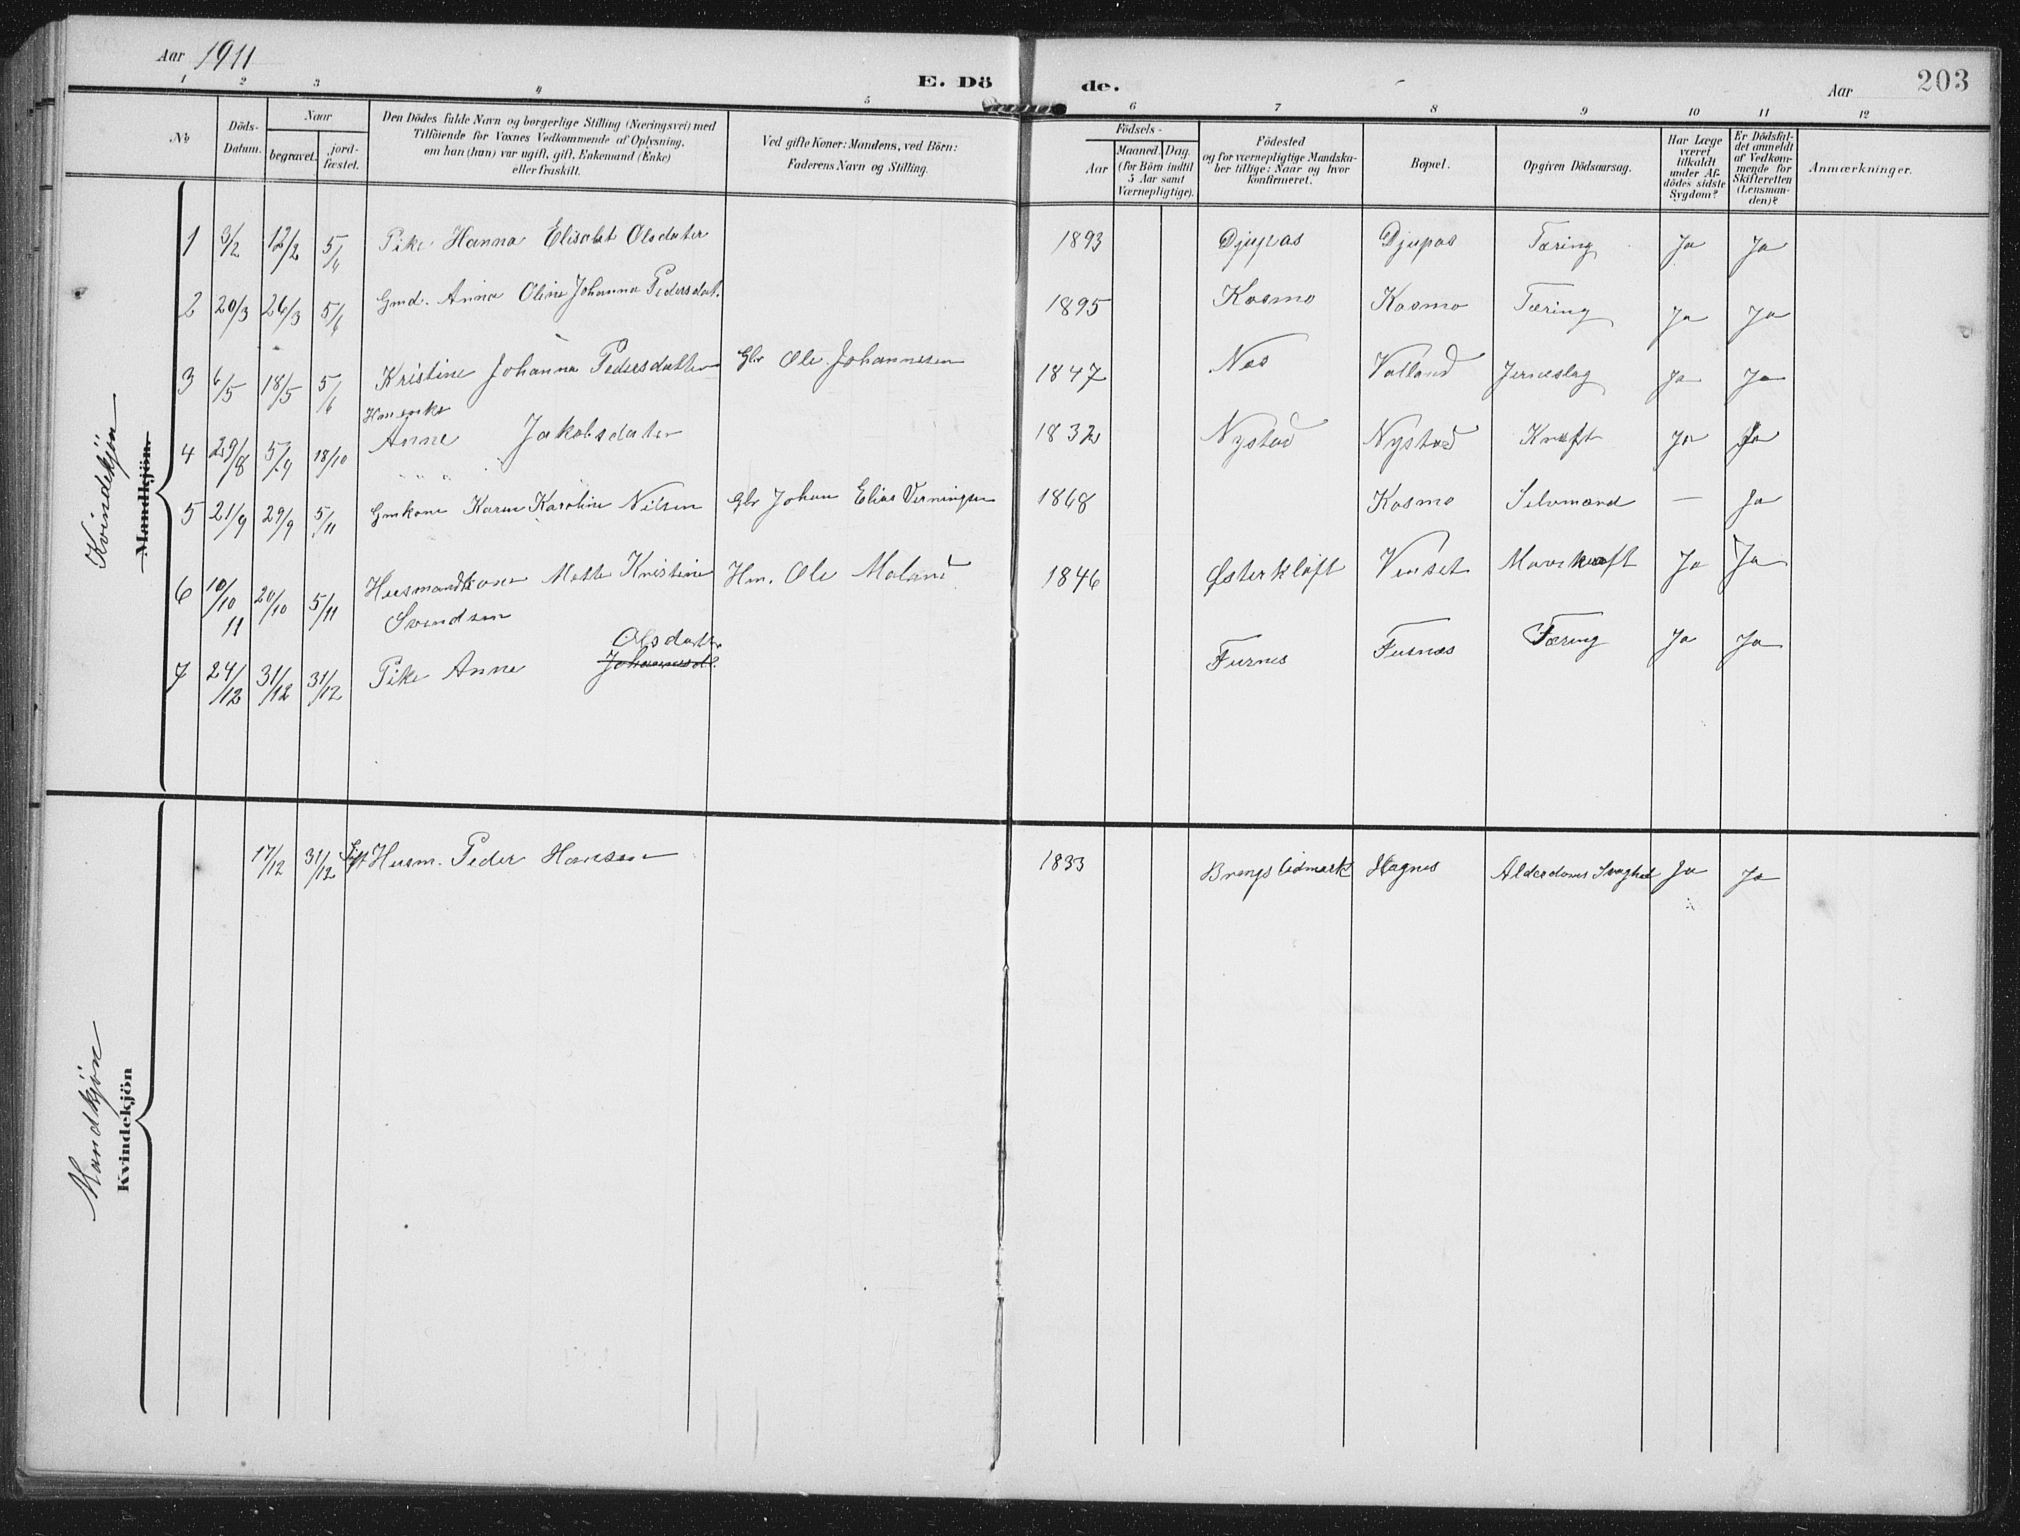 Aar 1911
E. Dö de.
Aar
203
1 2 3 4 5 6 7 8 9 10 11 12
No
Döds-Datum.
Naar
begravet.
jord-fæstet.
Den Dödes fulde Navn og borgerlige Stilling (Næringsvei) med
Tilföiende for Voxnes Vedkommende af Oplysning,
om han (hun) var ugift, gift, Enkemand (Enke)
eller fraskilt.
Ved gifte Koner: Mandens, ved Börn:
Faderens Navn og Stilling.
Födsels-
Aar
Maaned. Dag.
(for Börn indtil
5 Aar samt
Værnepligtige).
Födested
og for værnepligtige Mandska-
ber tillige: Naar og hvor
konfirmeret.
Bopæl.
Opgiven Dödsaarsag.
Har Læge
været
tilkaldt
under Af-
dödes sidste
Sygdom?
Er Dödsfal-
det anmeldt
af Vedkom-
mende for
Skifteretten
(Lensman-
den)?
Anmærkninger.
Kvindekjön
Mandkjön
1 3/2 12/2 5/4 Pike Hanna Elisabt Olsdater 1893 Djupos Djupos Tæring Ja Ja
2 20/3 26/3 5/6 Gmd. Anna Oline Johanna Pedersdat. 1895 Kosmo Kosmo Tæring Ja Ja
3 6/5 18/5 5/6 Kristine Johanna Pedersdatter Gbr Ole Johannesen 1847 Nes Valland Jerneslag Ja Ja
Hmenke
4 29/8 5/9 18/10 Anne Jakobsdater 1832 Nystad Nystad Kræft Ja Ja
5 21/9 29/9 5/11 Gmkone Karen Karoline Nilsen Gbr Johan Elias Verningsen 1868 Kosmo Selvmord — Ja
6 10/10 11 20/10 5/11 Husmandskone Mette Kristine Hm. Ole Moland 1846 Østerkløft Venset Mavekræft Ja Ja
Svendsen
Olsdatter
7 24/12 31/12 31/12 Pike Anne Johannesd. Furnes Fusnes Tæring Ja Ja
Mandkjön
Kvindekjön
17/12 31/12 Gift Husm. Peder Hansen 1833 Brengslidmark Hagnes Alderdoms Svaghed Ja Ja